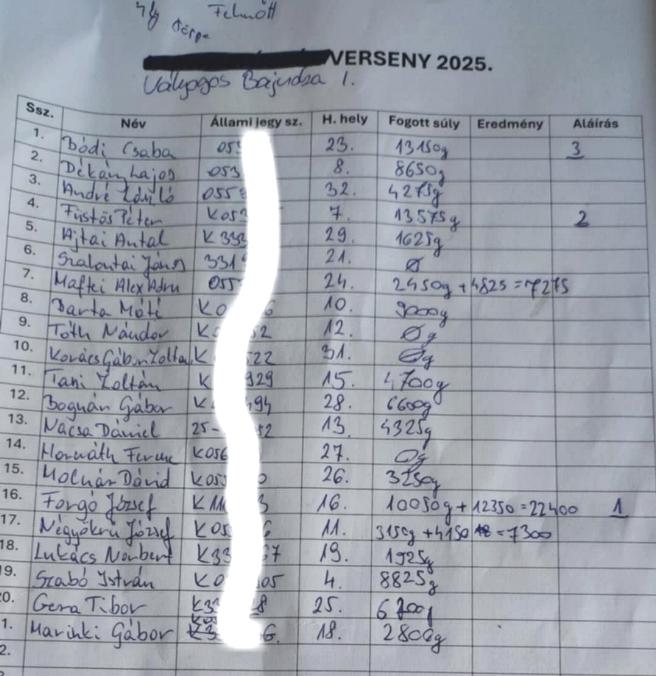 Felnőtt
VERSENY 2025.
Vályogos Bajnoksa 1.
Ssz. Név Állami jegy sz. H. hely Fogott súly Eredmény Aláírás
1. Bódi Csaba 055 23. 13150g 3
2. Dékány Lajos 053 8. 8650g
3. André László 055 32. 4275g
4. Füstös Péter K053 7. 13575g 2
5. Ajtai Antal K333 29. 1625g
6. Szalontai János 331 21. Ø
7. Maftei Alexandru 055 24. 2450g +4825 =7275
8. Barta Máté K0 6 10. 9000g
9. Tóth Nándor K 2 12. Øg
10. Kovács Gábor Zoltá K 22 31. Øg
11. Tani Zoltán K 929 15. 4700g
12. Bognán Gábor K 494 28. 6600g
13. Nácsa Dániel 25- 52 13. 4325g
14. Horváth Ferenc K056 27. Øg
15. Molnár Dávid K05 0 26. 3250g
16. Forgó József K11 3 16. 10050g + 12350 =22400 1
17. Négyökrű József K05 6 11. 3150g +4150 =7300
18. Lukács Norbert K33 67 19. 1925g
19. Szabó István K0 05 4. 8825g
20. Gera Tibor K3 8 25. 6200g
1. Marinki Gábor K3 6. 18. 2800g
2.